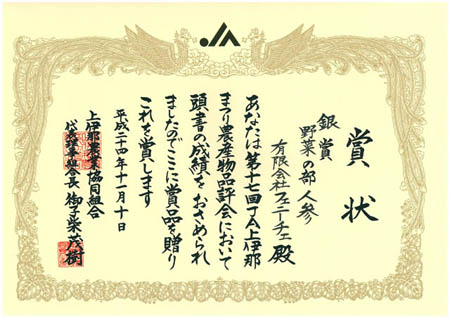 賞状
銀賞
野菜の部 人参
有限会社フェニーチェ 殿
あなたは第十七回JA上伊那
まつり農産物品評会において
頭書の成績をおさめられ
ましたのでここに賞品を贈り
これを賞します
平成二十四年十一月十日
上伊那農業協同組合
代表理事組合長 御子柴茂樹
JA